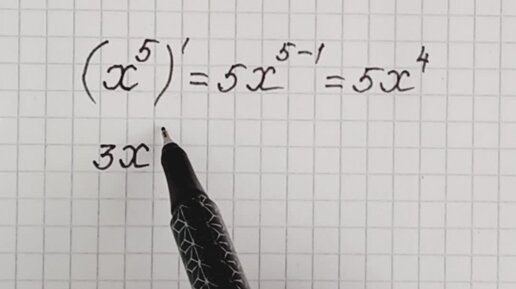 (x⁵)' = 5x⁵⁻¹ = 5x⁴
3x